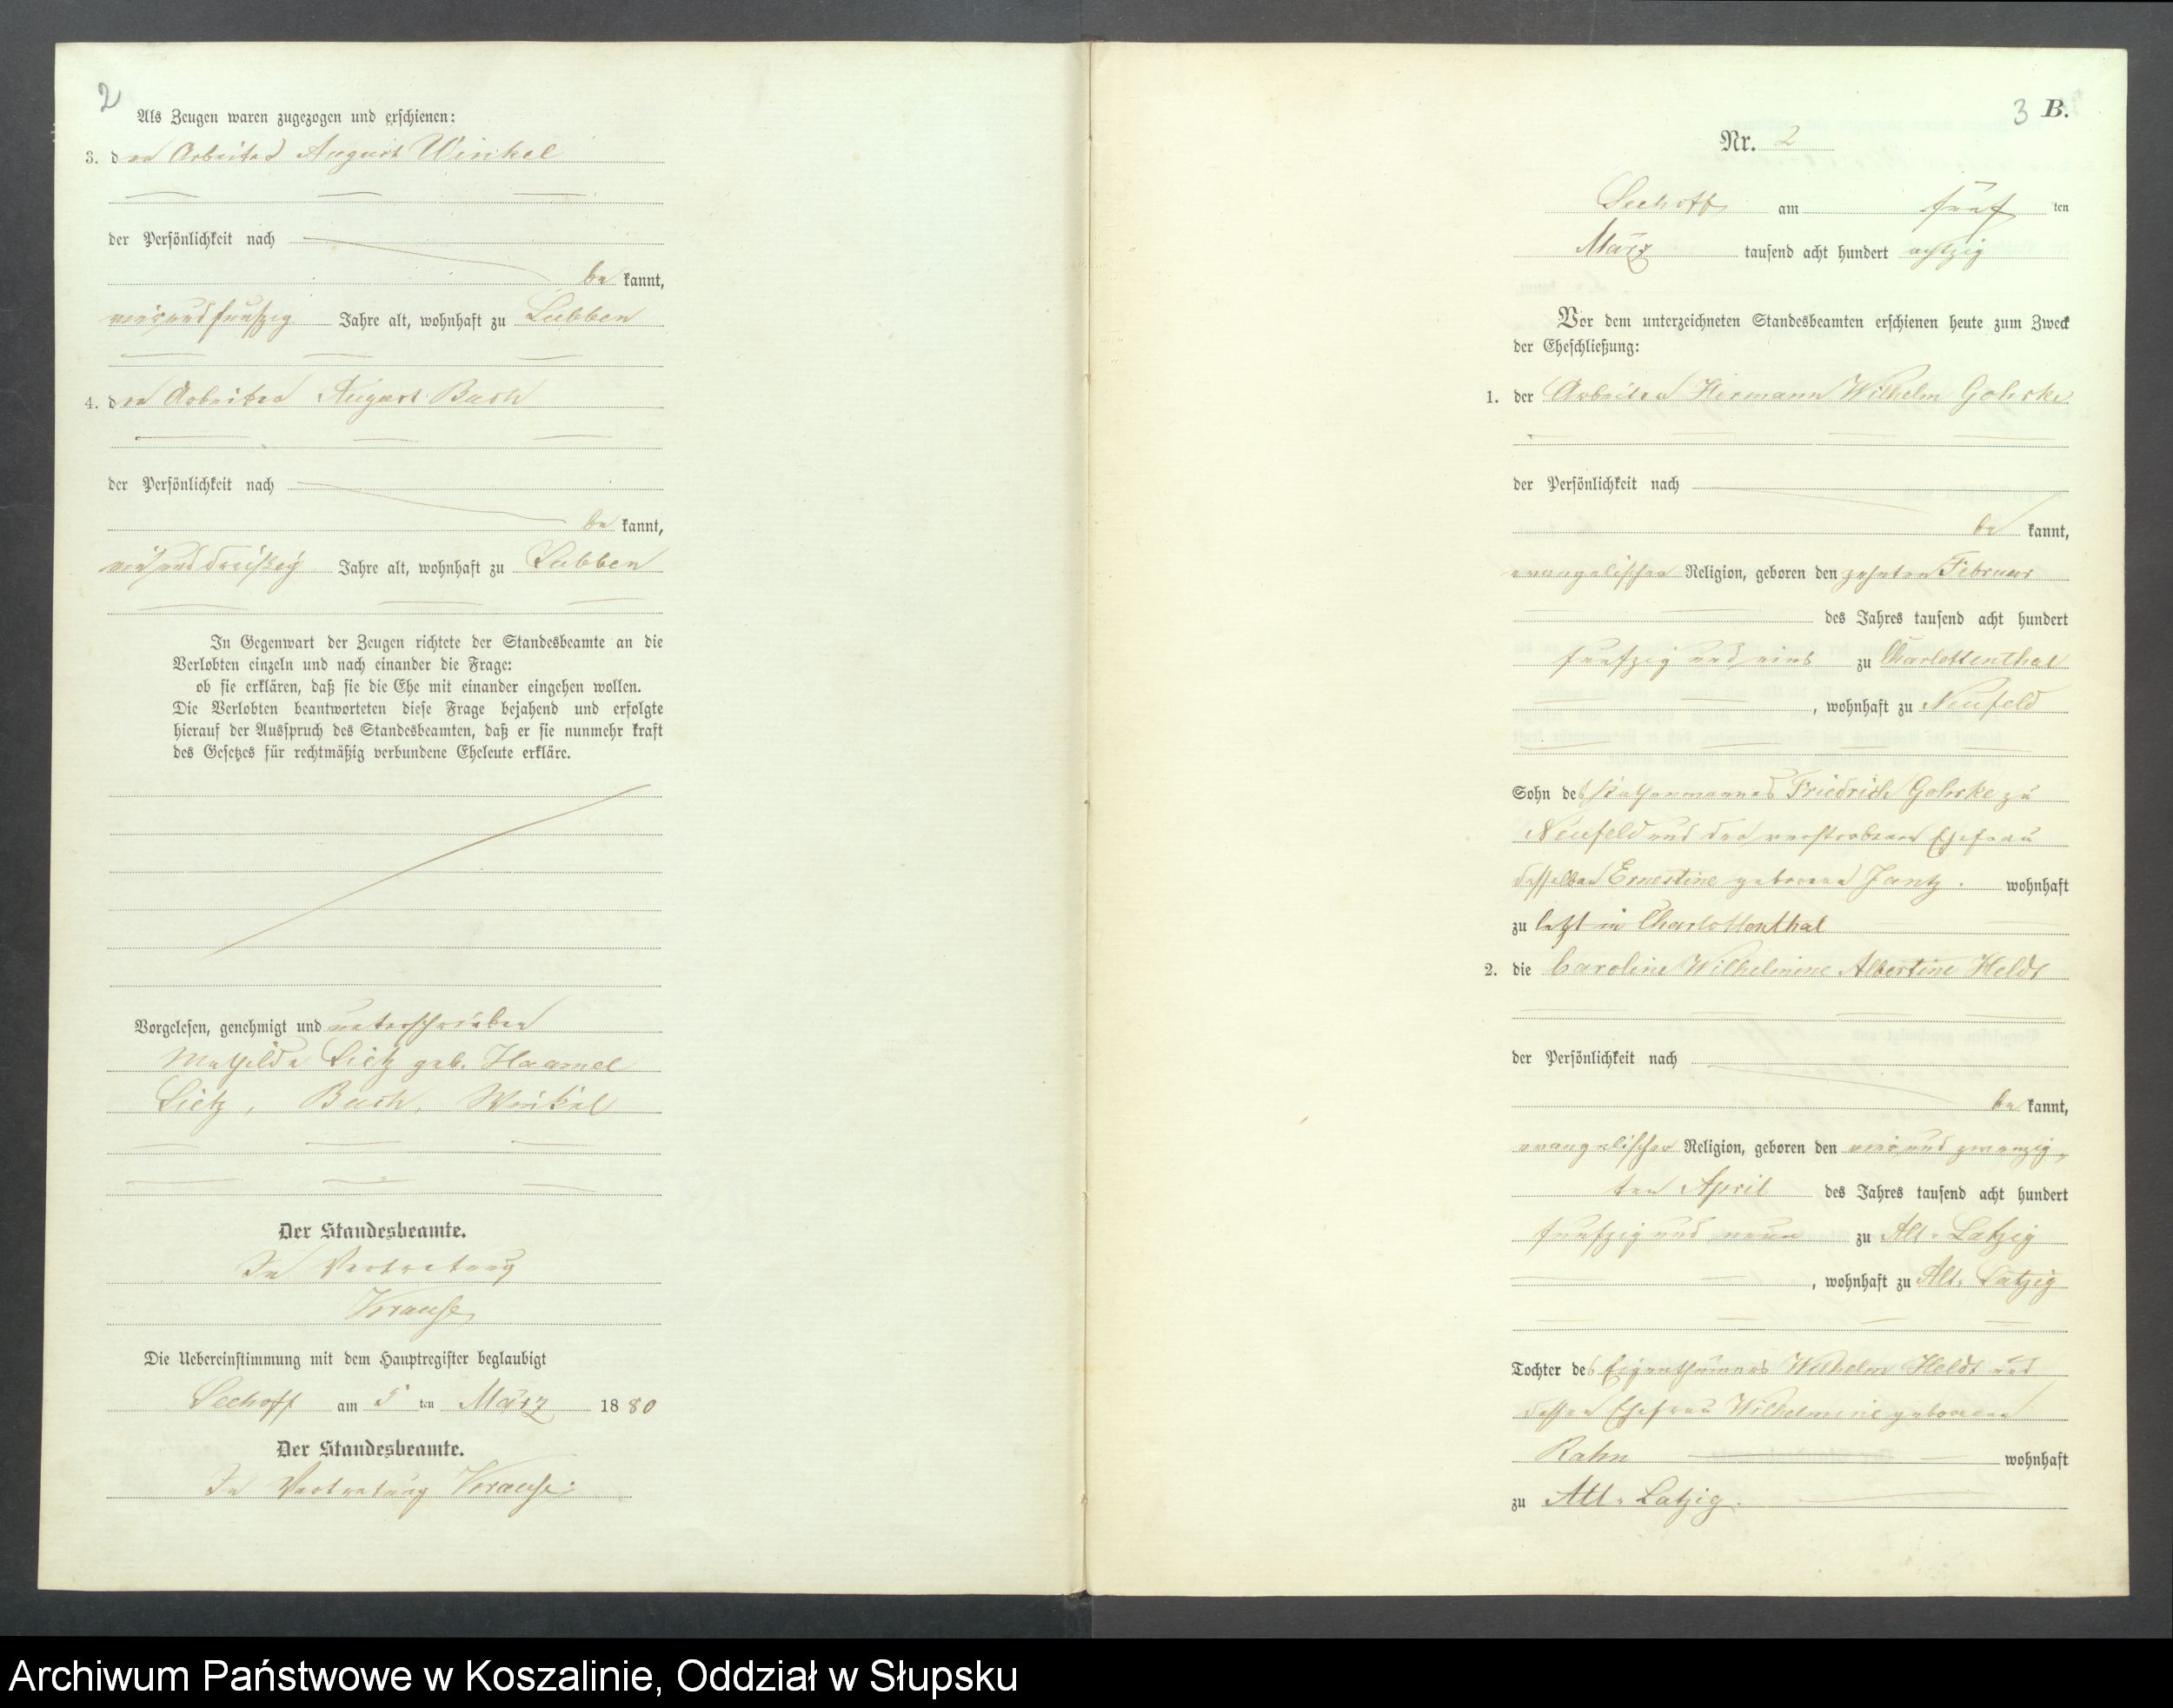 2
Als Zeugen waren zugezogen und erschienen:
3. der Arbeiter August Winkel
der Persönlichkeit nach
be kannt,
vierundfunfzig Jahre alt, wohnhaft zu Lübben
4. der Arbeiter August Bash
der Persönlichkeit nach
be kannt,
vierunddreißig Jahre alt, wohnhaft zu Lübben
In Gegenwart der Zeugen richtete der Standesbeamte an die
Verlobten einzeln und nach einander die Frage:
ob sie erklären, daß sie die Ehe mit einander eingehen wollen.
Die Verlobten beantworteten diese Frage bejahend und erfolgte
hierauf der Ausspruch des Standesbeamten, daß er sie nunmehr kraft
des Gesetzes für rechtmäßig verbundene Eheleute erkläre.
Vorgelesen, genehmigt und unterschrieben
Mathilde Lietz geb. Haamel
Lietz, Bash, Winkel
Der Standesbeamte.
In Vertretung
Krause
Die Uebereinstimmung mit dem Hauptregister beglaubigt
Seehoff am 5 ten März 1880
Der Standesbeamte.
In Vertretung Krause.
3 B.
Nr. 2
Seehoff am fünf ten
März tausend acht hundert achtzig
Vor dem unterzeichneten Standesbeamten erschienen heute zum Zweck
der Eheschließung:
1. der Arbeiter Hermann Wilhelm Gohrke
der Persönlichkeit nach
be kannt,
evangelischer Religion, geboren den zehnten Februar
des Jahres tausend acht hundert
funfzig und eins zu Charlottenthal
, wohnhaft zu Neufeld
Sohn des Kathenmannes Friedrich Gohrke zu
Neufeld und der verstorbenen Ehefrau
desselben Ernestine geborene Jantz. wohnhaft
zu letzt in Charlottenthal
2. die Caroline Wilhelmine Albertine Heldt
der Persönlichkeit nach
be kannt,
evangelischer Religion, geboren den vierund zwanzig
ten April des Jahres tausend acht hundert
funfzig und neun zu Alt-Latzig
, wohnhaft zu Alt-Latzig
Tochter des Eigenthümers Wilhelm Heldt und
dessen Ehefrau Wilhelmine geborene
Rahn wohnhaft
zu Alt-Latzig.
Archiwum Państwowe w Koszalinie, Oddział w Słupsku